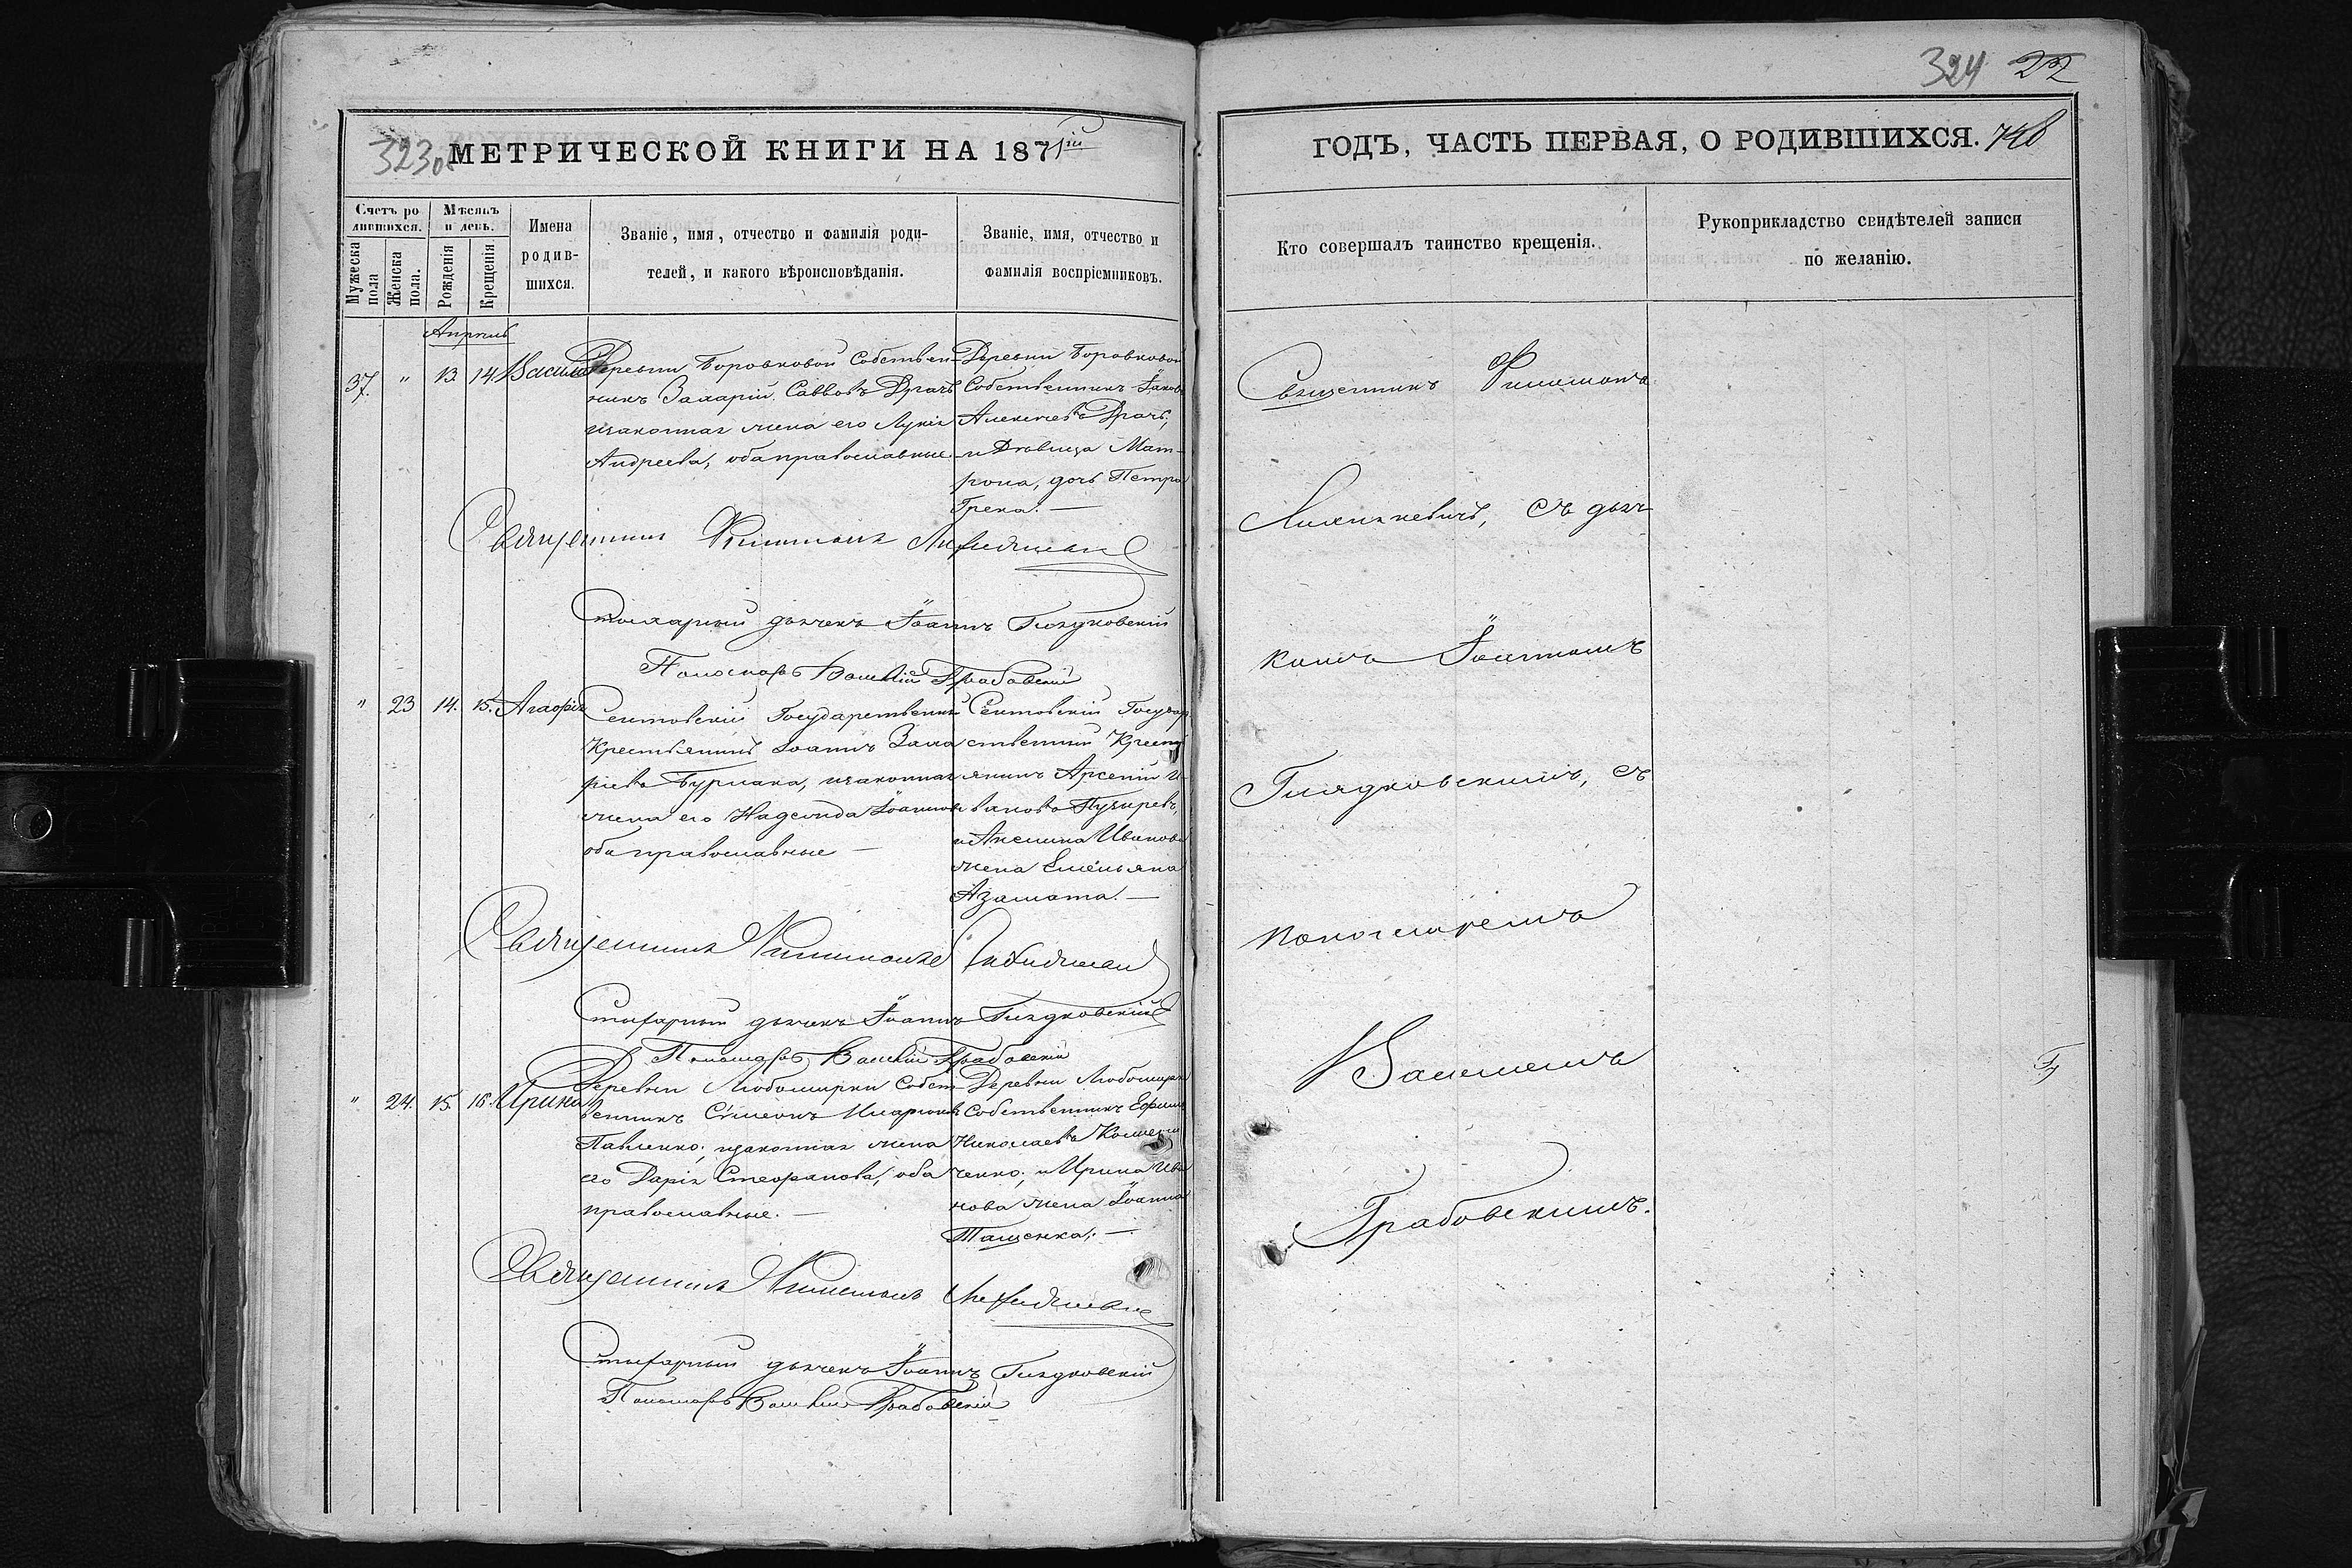 324 22
323об
МЕТРИЧЕСКОЙ КНИГИ НА 1871ій
ГОДЪ, ЧАСТЬ ПЕРВАЯ, О РОДИВШИХСЯ.
Счетъ ро
дившихся.
Мужеска
пола
Женска
пола.
Мѣсяцъ
и день.
Рожденія
Крещенія
Имена
родив-
шихся.
Званіе, имя, отчество и фамилія роди-
телей, и какого вѣроисповѣданія.
Званіе, имя, отчество и
фамилія воспріемниковъ.
Кто совершалъ таинство крещенія.
Рукоприкладство свидѣтелей записи
по желанію.
Апрель
37. " 13. 14. Василій
Деревни Боровковой Собствен-
никъ Захарій Саввовъ Драчъ
и законная жена его Лукія
Андреева, оба православные
Деревни Боровковой
Собственникъ Іаковъ
Алексѣевъ Драчъ,
и Дѣвица Мат-
рона, дочь Петра
Грека. —
Священникъ Филимонъ
Стихарный дьячекъ Іоаннъ Гляздковскій
Пономарь Василій Грабовскій
" 23 14. 15. Агафія
Сентовскій Государственный
Крестьянинъ Іоаннъ Заха
ріевъ Бурлака, и законная
жена его Надежда Іоаннова
оба православные —
Сентовскій Государ
ственный Кресть
янинъ Арсеній И-
вановъ Пузыревъ,
и Акелина Иванова
жена Емельяна
Азамата. —
Священникъ Филимонъ
Стихарный дьячекъ Іоаннъ
Пономарь Василій Грабовскій
" 24. 15. 16. Ирина
Деревни Любомирки Собст-
венникъ Сѵмеонъ Иларіоновъ
Павленко, и законная жена
его Дарія Стефанова, оба
православные. —
Деревни Любомирки
Собственникъ Ефимъ
Николаевъ
ченко, и Ирина Ива
нова жена Іоанна
Тащенка. —
Священникъ Филимонъ
Стихарный дьячекъ Іоаннъ
Пономарь Василій Грабовскій
Священникъ Филимонъ
съ дьяч-
комъ Іоанномъ
съ
пономаремъ
Василіемъ
Грабовскимъ.